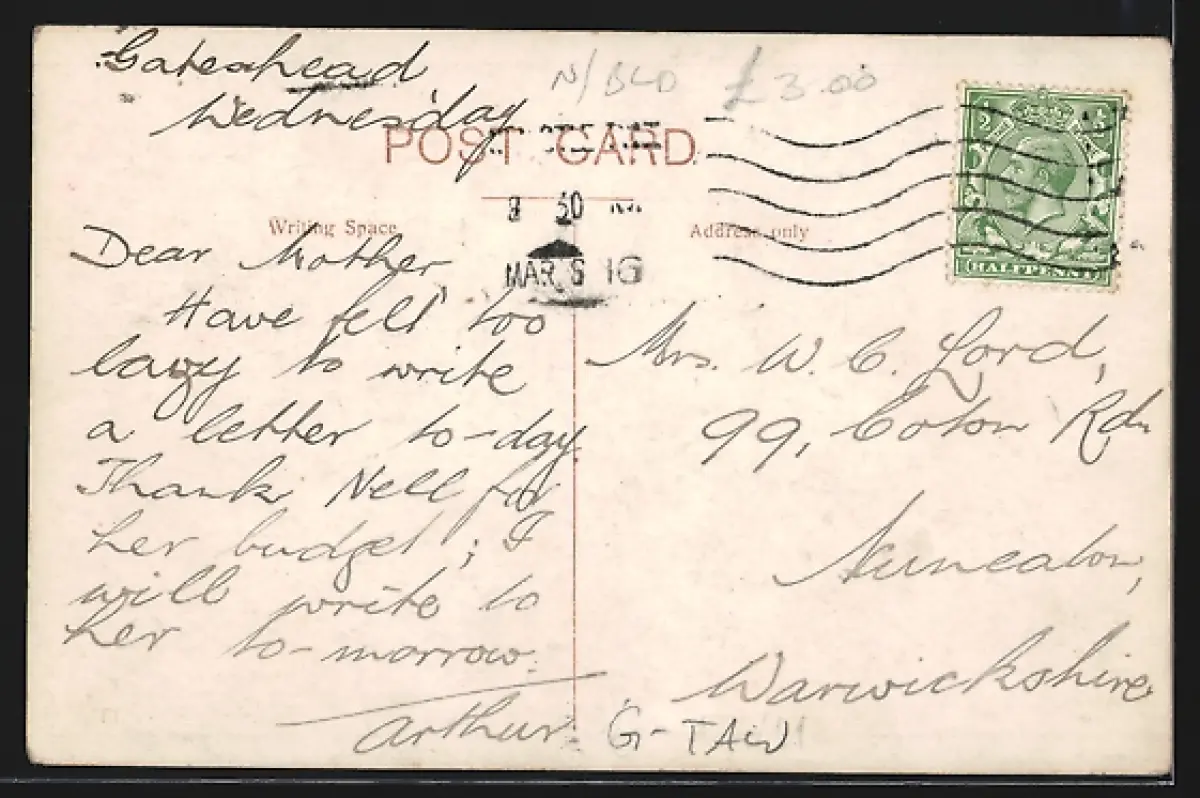 Gateshead
Wednesday
N/BLD £3.00
POST CARD
30
MAR 16
Writing Space
Address only
HALFPENNY
Dear Mother
Have felt too
lazy to write
a letter to-day
Thank Nell for
her budget; I
will write to
her to-morrow.
Arthur
Mrs. W. C. Lord,
99, Coton Rd.
Nuneaton,
Warwickshire